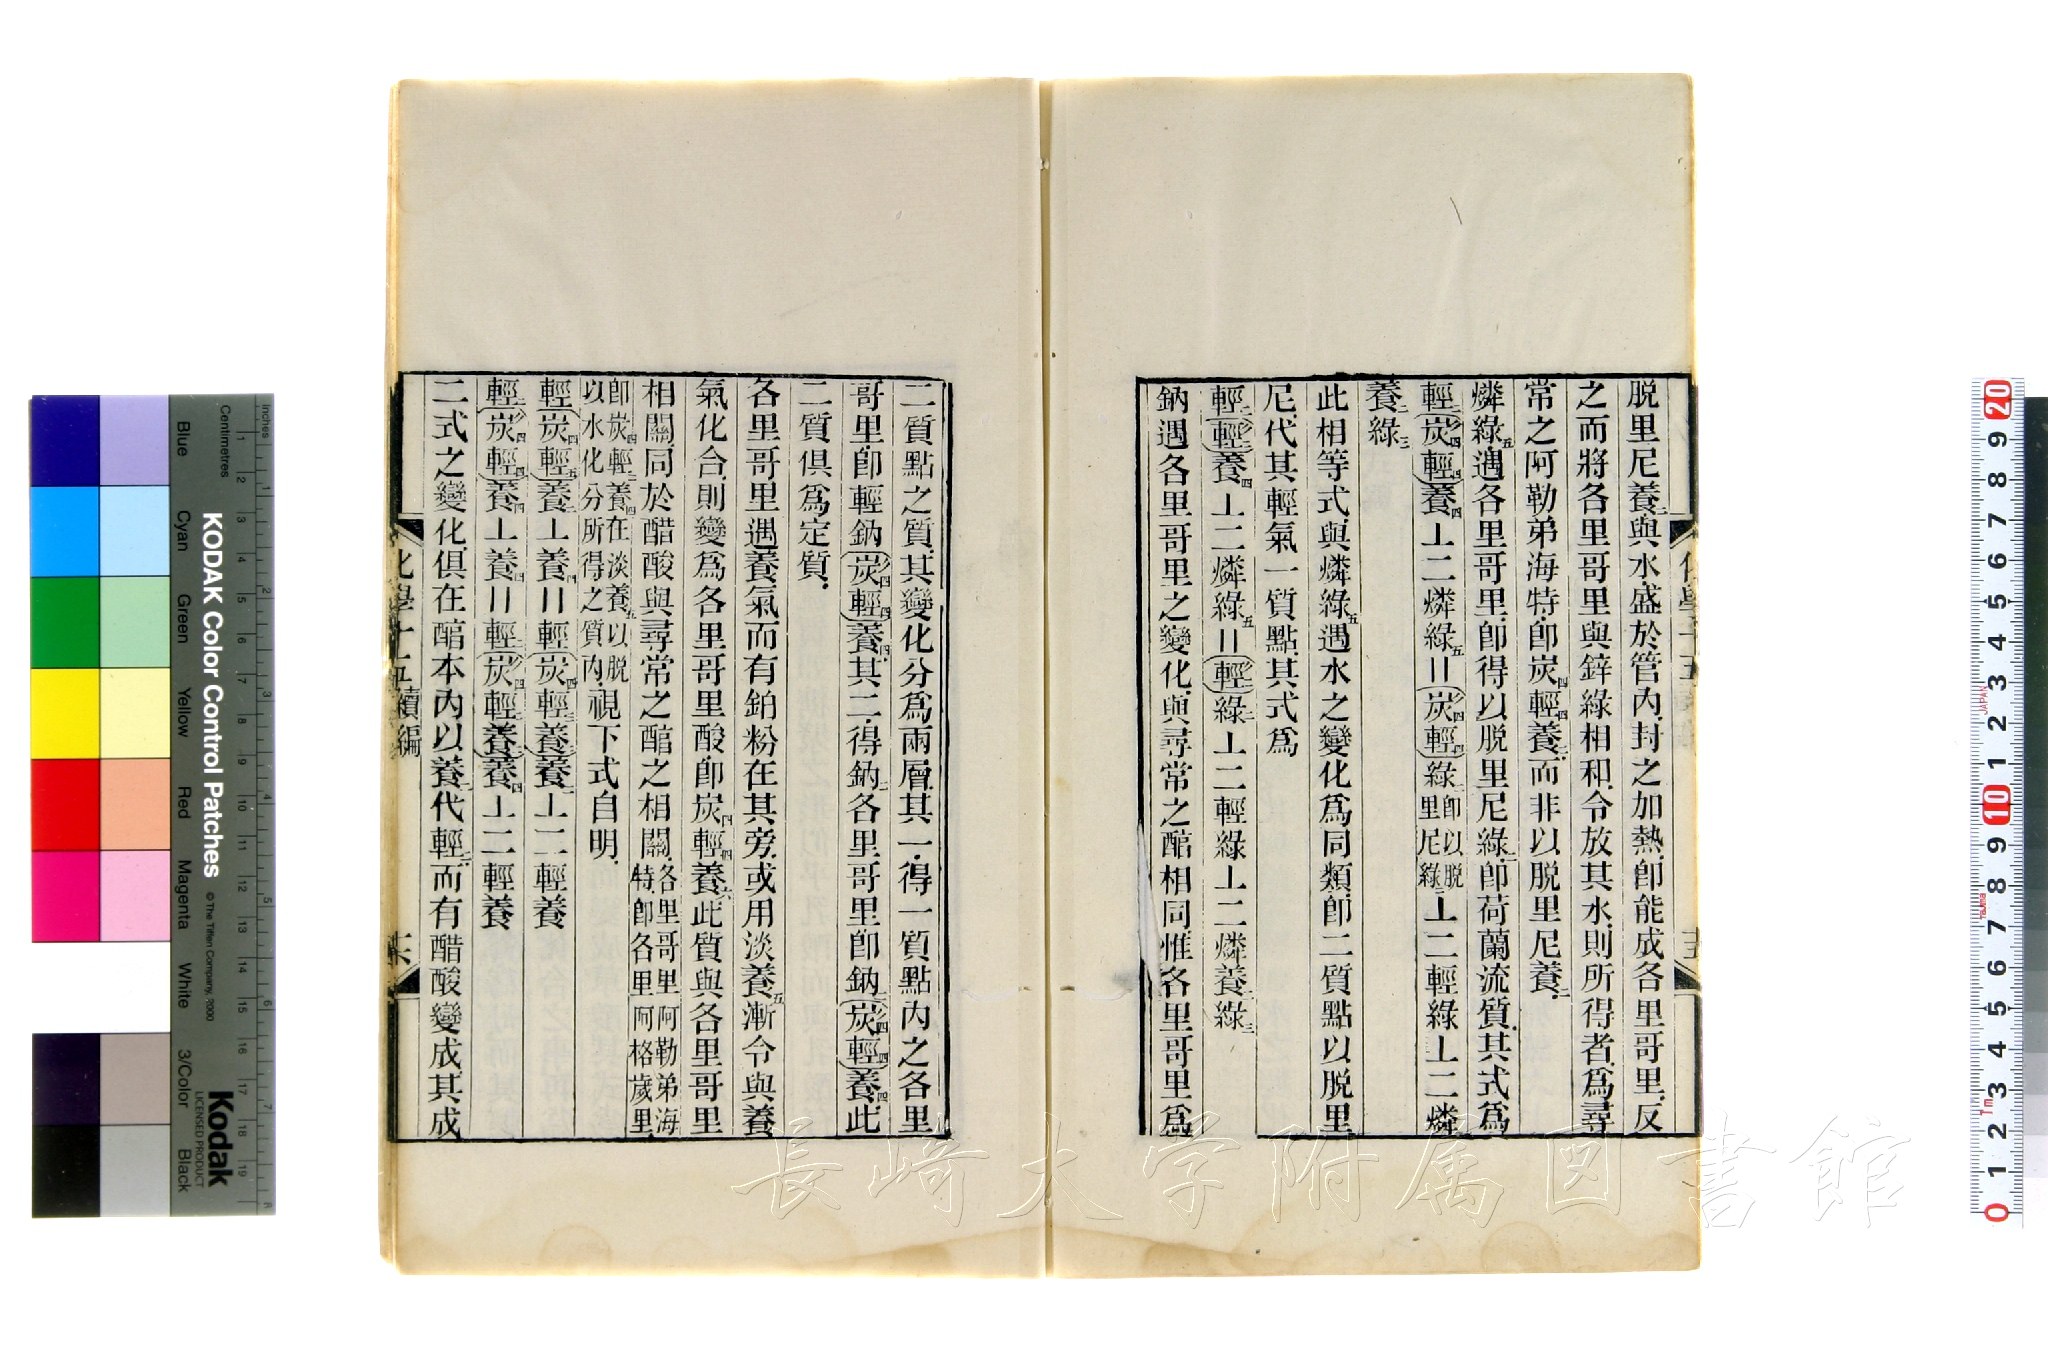 脱里尼養二與水盛於管内封之加熱卽能成各里哥里反
之而將各里哥里與鋅綠相和令放其水則所得者爲尋
常之阿勒弟海特卽炭四輕四養二而非以脱里尼養二
燐綠五遇各里哥里卽得以脱里尼綠二卽荷蘭流質其式爲
輕二(炭四輕四)養四⊥二燐綠五=(炭四輕四)綠二卽以脱里尼綠二⊥二輕綠⊥二燐
養二綠三
此相等式與燐綠五遇水之變化爲同類卽二質點以脱里
尼代其輕氣一質點其式爲
輕二(輕二)養四⊥二燐綠五=(輕二)綠二⊥二輕綠⊥二燐養二綠三
鈉遇各里哥里之變化與尋常之醕相同惟各里哥里爲
二質點之質其變化分爲兩層其一得一質點内之各里
哥里卽輕鈉(炭四輕四)養四其二得鈉各里哥里卽鈉二(炭四輕四)養四此
二質俱爲定質
各里哥里遇養氣而有鉑粉在其旁或用淡養五漸令與養
氣化合則變爲各里哥里酸卽炭四輕四養六此質與各里哥里
相關同於醋酸與尋常之醕之相關各里哥里阿勒弟海特卽各里阿格歲里
卽炭四輕二養四在淡養五以脱以水化分所得之質内視下式自明
輕(炭四輕五)養二⊥養四=輕(炭四輕三養二)養二⊥二輕養
輕二(炭四輕四)養四⊥養四=輕二(炭四輕二養二)養四⊥二輕養
二式之變化俱在醕本内以養二代輕二而有醋酸變成其成
化學十五續編
長崎大学附属図書館
KODAK Color Control Patches
© The Tiffen Company, 2000
Kodak
LICENSED PRODUCT
Blue Cyan Green Yellow Red Magenta White 3/Color Black
Inches
Centimetres